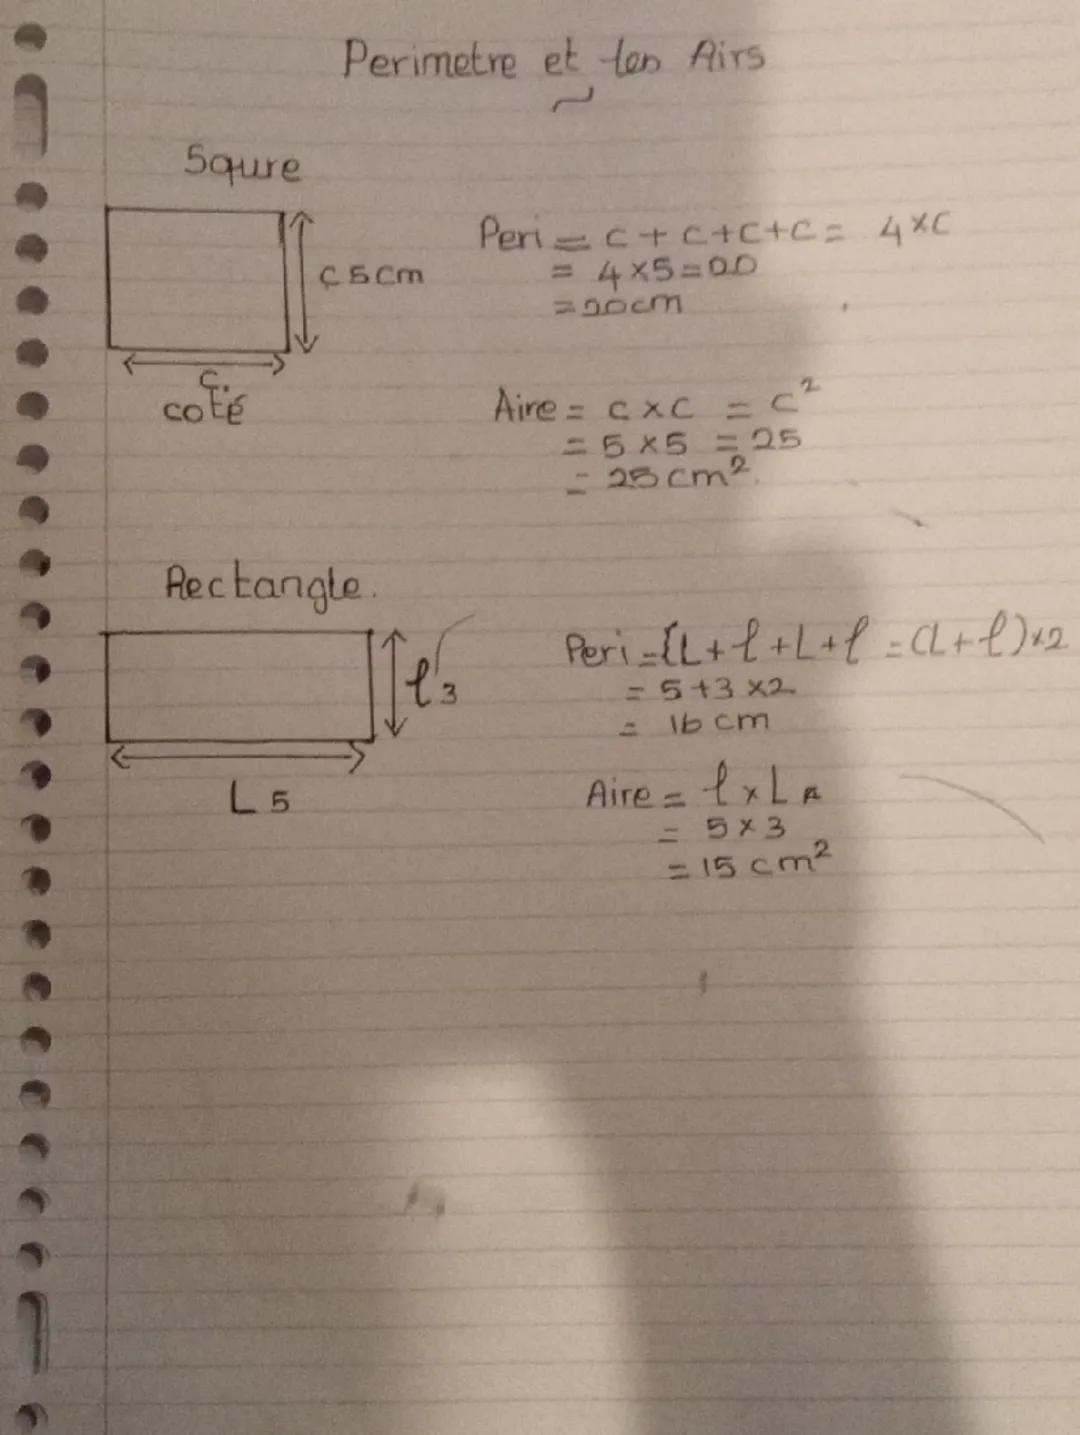 Perimetre et les Airs
Squre
Peri = c + c + c + c = 4 × c
c 5 cm
= 4 × 5 = 20
= 20 cm
c.
coté
Aire = c × c = c²
= 5 × 5 = 25
= 25 cm².
Rectangle.
Peri = (L + l + L + l = (L + l) × 2
l 3
= 5 + 3 × 2
= 16 cm
L 5
Aire = l × L
= 5 × 3
= 15 cm²